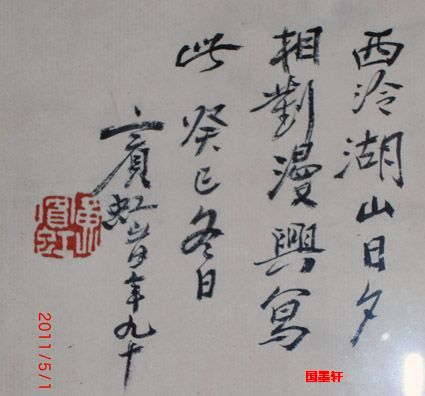 西泠湖山日夕
相對漫興寫
此 癸巳冬日
賓虹旹年九十
2011/5/1
国墨轩